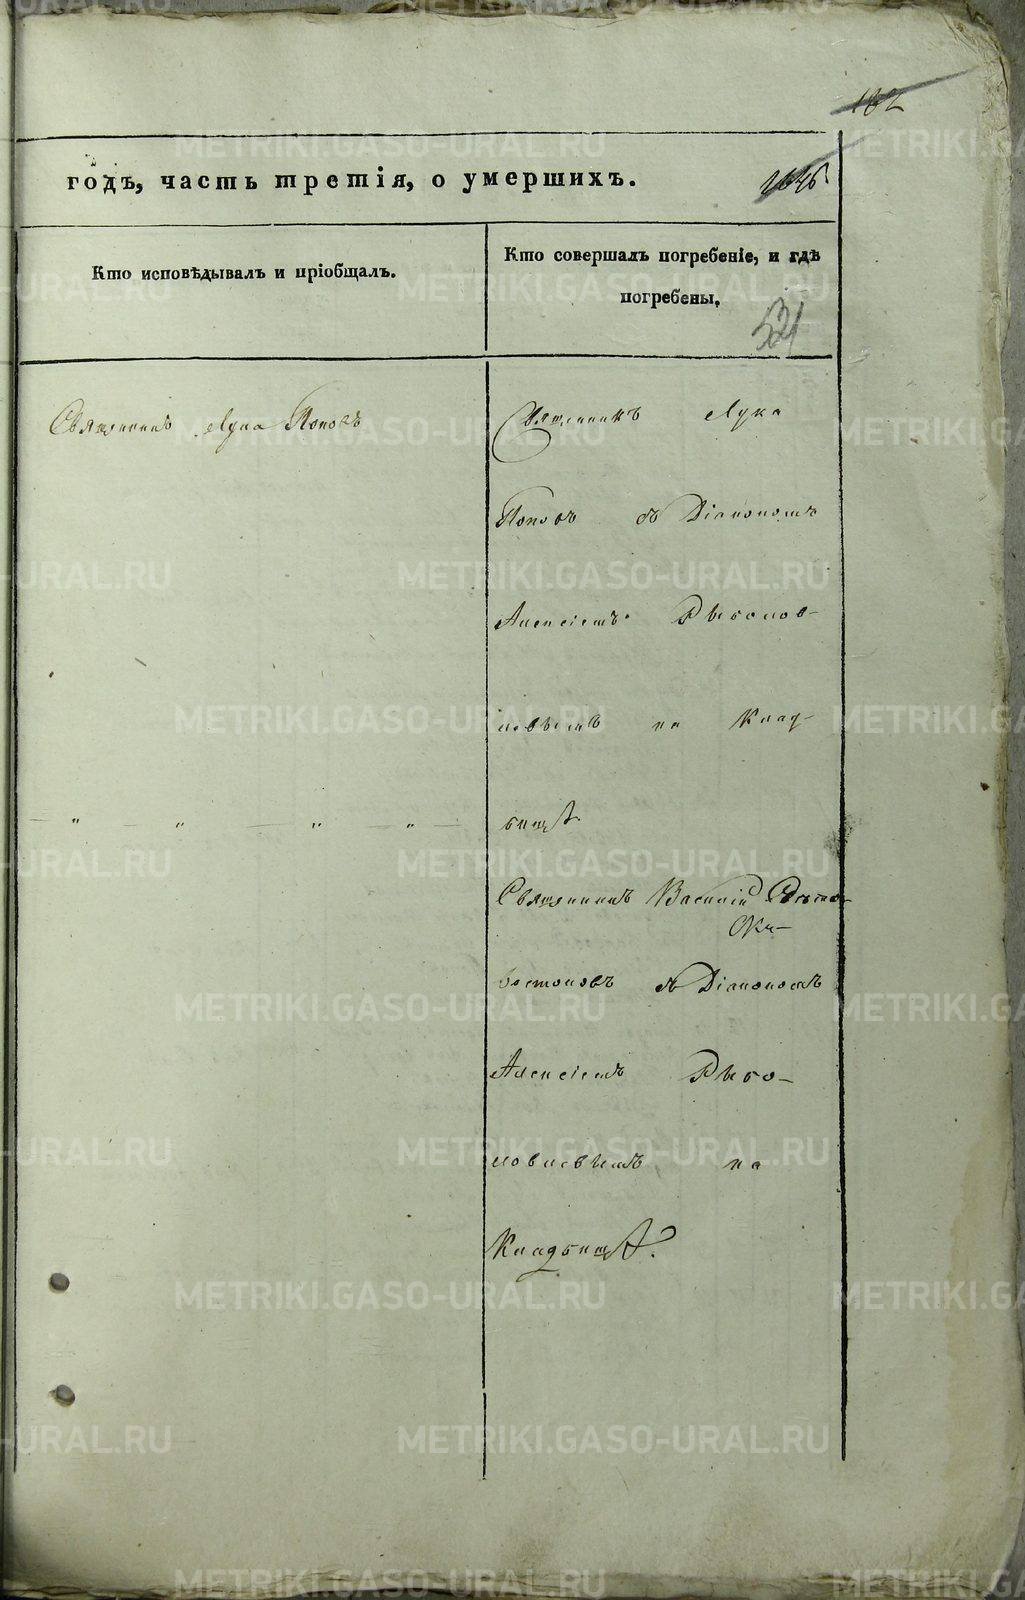 182
годъ, часть третія, о умершихъ.
Кто исповѣдывалъ и пріобщалъ.
Кто совершалъ погребеніе, и гдѣ
погребены,
521
Священникъ Лука Поповъ
Священникъ Лука
Поповъ съ Діакономъ
Алексіемъ Рыболов-
левымъ на Клад-
бищѣ.
Священникъ Василій
востоковъ съ Діакономъ
Алексіемъ Рыбо-
ловлевымъ на
Кладбищѣ.
METRIKI.GASO-URAL.RU